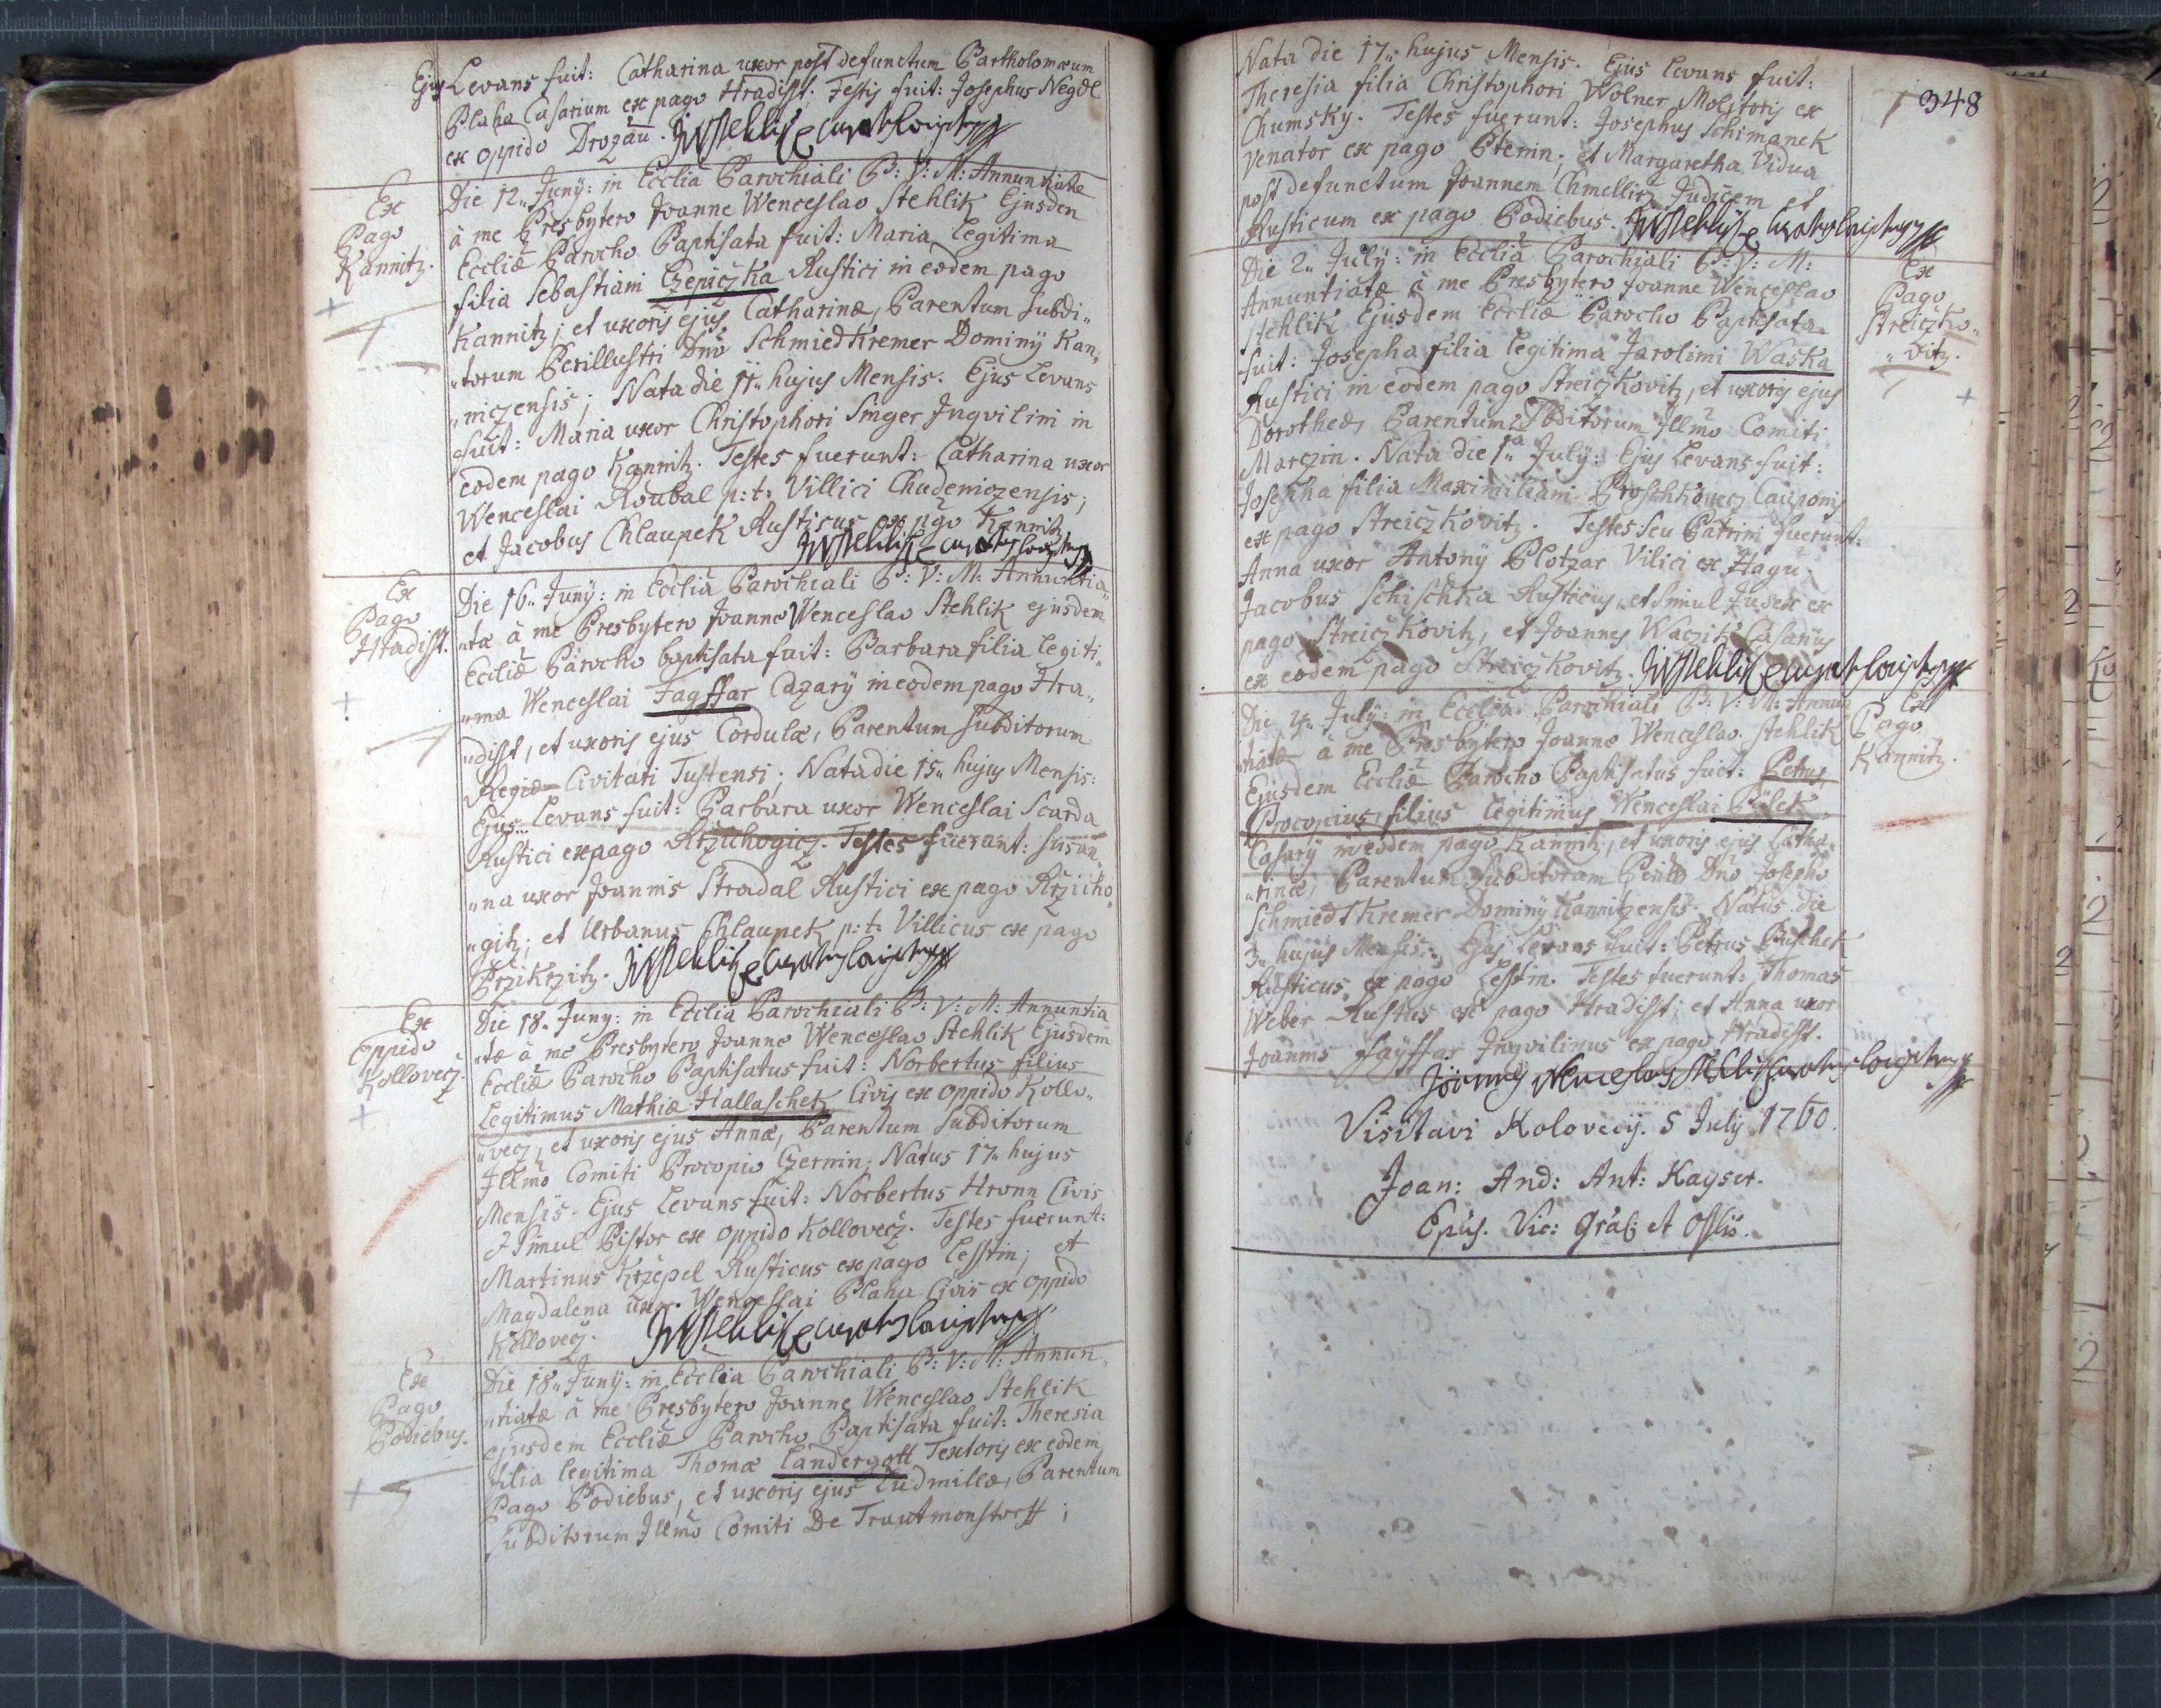 Ejus Levans fuit: Catharina uxor post defunctum Bartholomæum
Blaha Casarium ex pago Hradisst. Testis fuit: Josephus Negdl
ex oppido Drozau.
Ex
Pago
Kannitz.
Die 12. Junÿ: in Ecclia Parochiali B: V: M: Annuntiatæ
à me Presbytero Joanne Wenceslao Stehlik Ejusdem
Eccliæ Parocho Baptisata fuit: Maria Legitima
filia Sebastiani Czepiczka Rustici in eodem pago
Kannitz; et uxoris ejus Catharinæ, Parentum Subdi„
„torum Perillustri Dno Schmiedt Kremer Dominÿ Kan„
„niczensis; Nata die 11. hujus Mensis. Ejus Levans
fuit: Maria uxor Christophori Singer Inqvilini in
eodem pago Kannitz. Testes fuerunt: Catharina uxor
Wenceslai Roubal p: t: Villici Chudeniczensis;
et Jacobus Chlaupek Rusticus ex pgo Kannitz
Ex
Pago
Hradisst.
Die 16. Junÿ: in Ecclia Parochiali B: V: M: Annuntia„
„tæ à me Presbytero Joanne Wenceslao Stehlik ejusdem
Eccliæ Parocho baptisata fuit: Barbara filia legiti„
„ma Wenceslai Fagffar Cazarÿ in eodem pago Hra„
„disst, et uxoris ejus Cordulæ, Parentum subditorum
Regiæ Civitati Tustensi; Nata die 15. hujus Mensis:
Ejus Levans fuit: Barbara uxor Wenceslai Scarda
Rustici ex pago Rzichogicz. Testes fuerunt: Susan„
„na uxor Joannis Stradal Rustici ex pago Rzicho„
„gitz; et Urbanus Chlaupek p: t: Villicus ex pago
Przikrzitz.
Ex
Oppido
Kollovecz.
Die 18. Juny: in Ecclia Parochiali B: V: M: Annuntia
„tæ à me Presbytero Joanne Wenceslao Stehlik Ejusdem
Eccliæ Parocho Baptisatus fuit: Norbertus filius
Legitimus Mathiæ Hallaschek Civis ex oppido Kollo„
„vecz, et uxoris ejus Annæ, Parentum Subditorum
Illmo Comiti Procopio Czernin; Natus 17. hujus
Mensis. Ejus Levans fuit: Norbertus Hronn Civis
et Simul Pistor ex oppido Kollovecz. Testes fuerunt:
Martinus Krzepel Rusticus ex pago Lesstin; et
Magdalena uxor Wenceslai Blaha Civis ex oppido
Kollovecz.
Ex
Pago
Podiebus.
Die 18. Junÿ: in Ecclia Parochiali B: V: M: Annun„
„tiatæ à me Presbytero Joanne Wenceslao Stehlik
ejusdem Eccliæ Parocho Baptisata fuit: Theresia
filia legitima Thomæ Landergott Textoris ex eodem
Pago Podiebus, et uxoris ejus Ludmillæ, Parentum
Subditorum Illmo Comiti De Trautmonstorff;
348
Nata die 17. hujus Mensis. Ejus Levans fuit:
Theresia filia Christophori Wolner Molitoris ex
Chumsky. Testes fuerunt: Josephus Schimanek
Venator ex pago Ptenin; et Margaretha Vidua
post defunctum Joannem Chmellitz Judicem et
Rusticum ex pago Podiebus.
Ex
Pago
Streiczko„
„vitz.
Die 2. Julÿ: in Ecclia Parochiali B: V: M:
Annuntiatæ à me Presbytero Joanne Wenceslao
Stehlik Ejusdem Eccliæ Parocho Baptisata
fuit: Josepha filia legitima Jarolimi Waska
Rustici in eodem pago Streiczkovitz, et uxoris ejus
Dorotheæ, Parentum Sbditorum Illmo Comiti
Marczin. Nata die 1. Julÿ: Ejus Levans fuit:
Josepha filia Maximiliani Proschkowecz Cauponis
ex pago Streiczkovitz. Testes seu Patrini fuerunt:
Anna uxor Antonÿ Plotzar Vilici ex Hagu.
Jacobus Schischka Rusticus, et Simul Judex ex
pago Streiczkovitz, et Joannes Waczik Casarius
ex eodem pago Streiczkovitz.
Ex
Pago
Kannitz.
Die 4. Julÿ: in Ecclia Parochiali B: V: M: Annun
„tiatæ à me Presbytero Joanne Wenceslao Stehlik
Ejusdem Eccliæ Parocho Baptisatus fuit: Petrus
Procopius filius legitimus Wenceslai Bilek
Casarÿ in eodem pago Kannitz, et uxoris ejus Catha„
„rinæ, Parentum Subditorum Dno Josepho
Schmiedt Kremer Dominÿ Kannitzensis. Natus die
3. hujus Mensis. Ejus Levans fuit: Petrus Puschek
Rusticus ex pago Lesstin. Testes fuerunt: Thomas
Weber Rusticus ex pago Hradisst; et Anna uxor
Joannis Fayffar Inqvilinus ex pago Hradisst.
Joannes Wenceslaus Stehlik
Visitavi Kolovecij. 5 July 1760.
Joan: And: Ant: Kayser.
Epus. Vic: Gral: et Offlis.